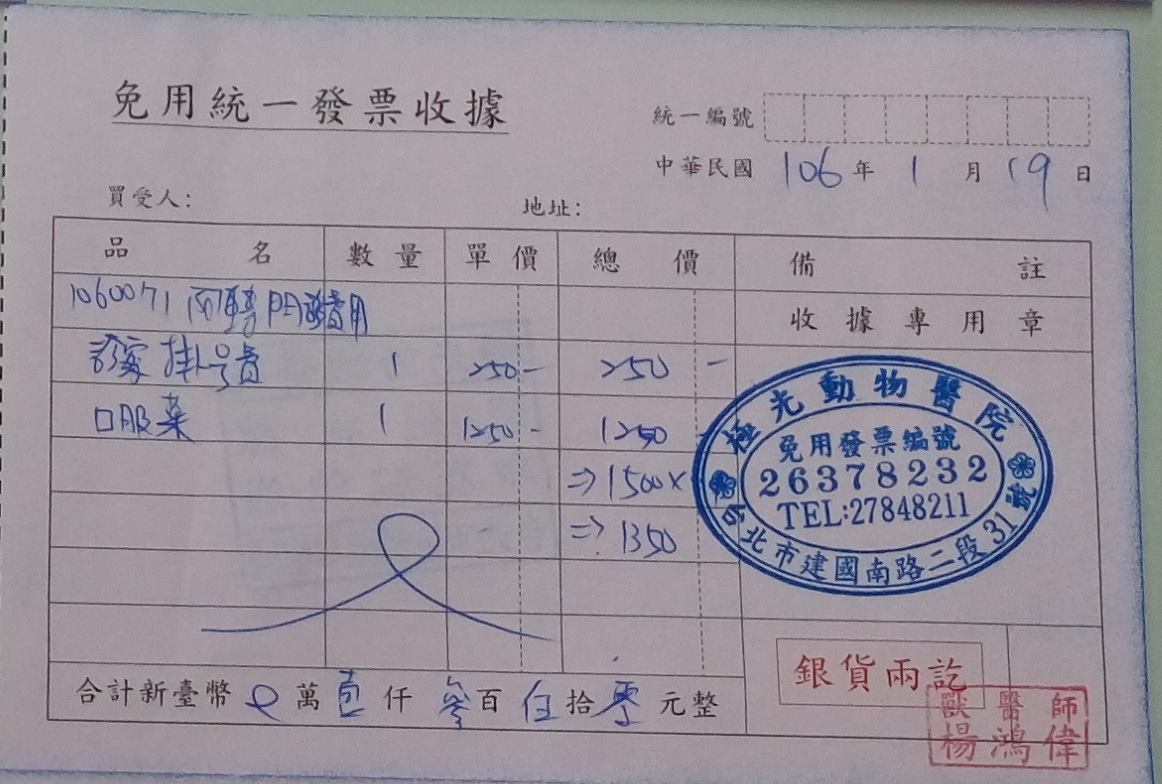 免用統一發票收據
統一編號
中華民國 106 年 1 月 19 日
買受人： 地址：
品名 數量 單價 總價 備註
收據專用章
1060071
掛号費 1 250- 250-
口服藥 1 1250- 1250
⇒1500×
⇒1350
極光動物醫院
免用發票編號
26378232
TEL:27848211
台北市建國南路二段31號
合計新臺幣 萬壹仟參百伍拾零元整
銀貨兩訖
獸醫師
楊鴻偉